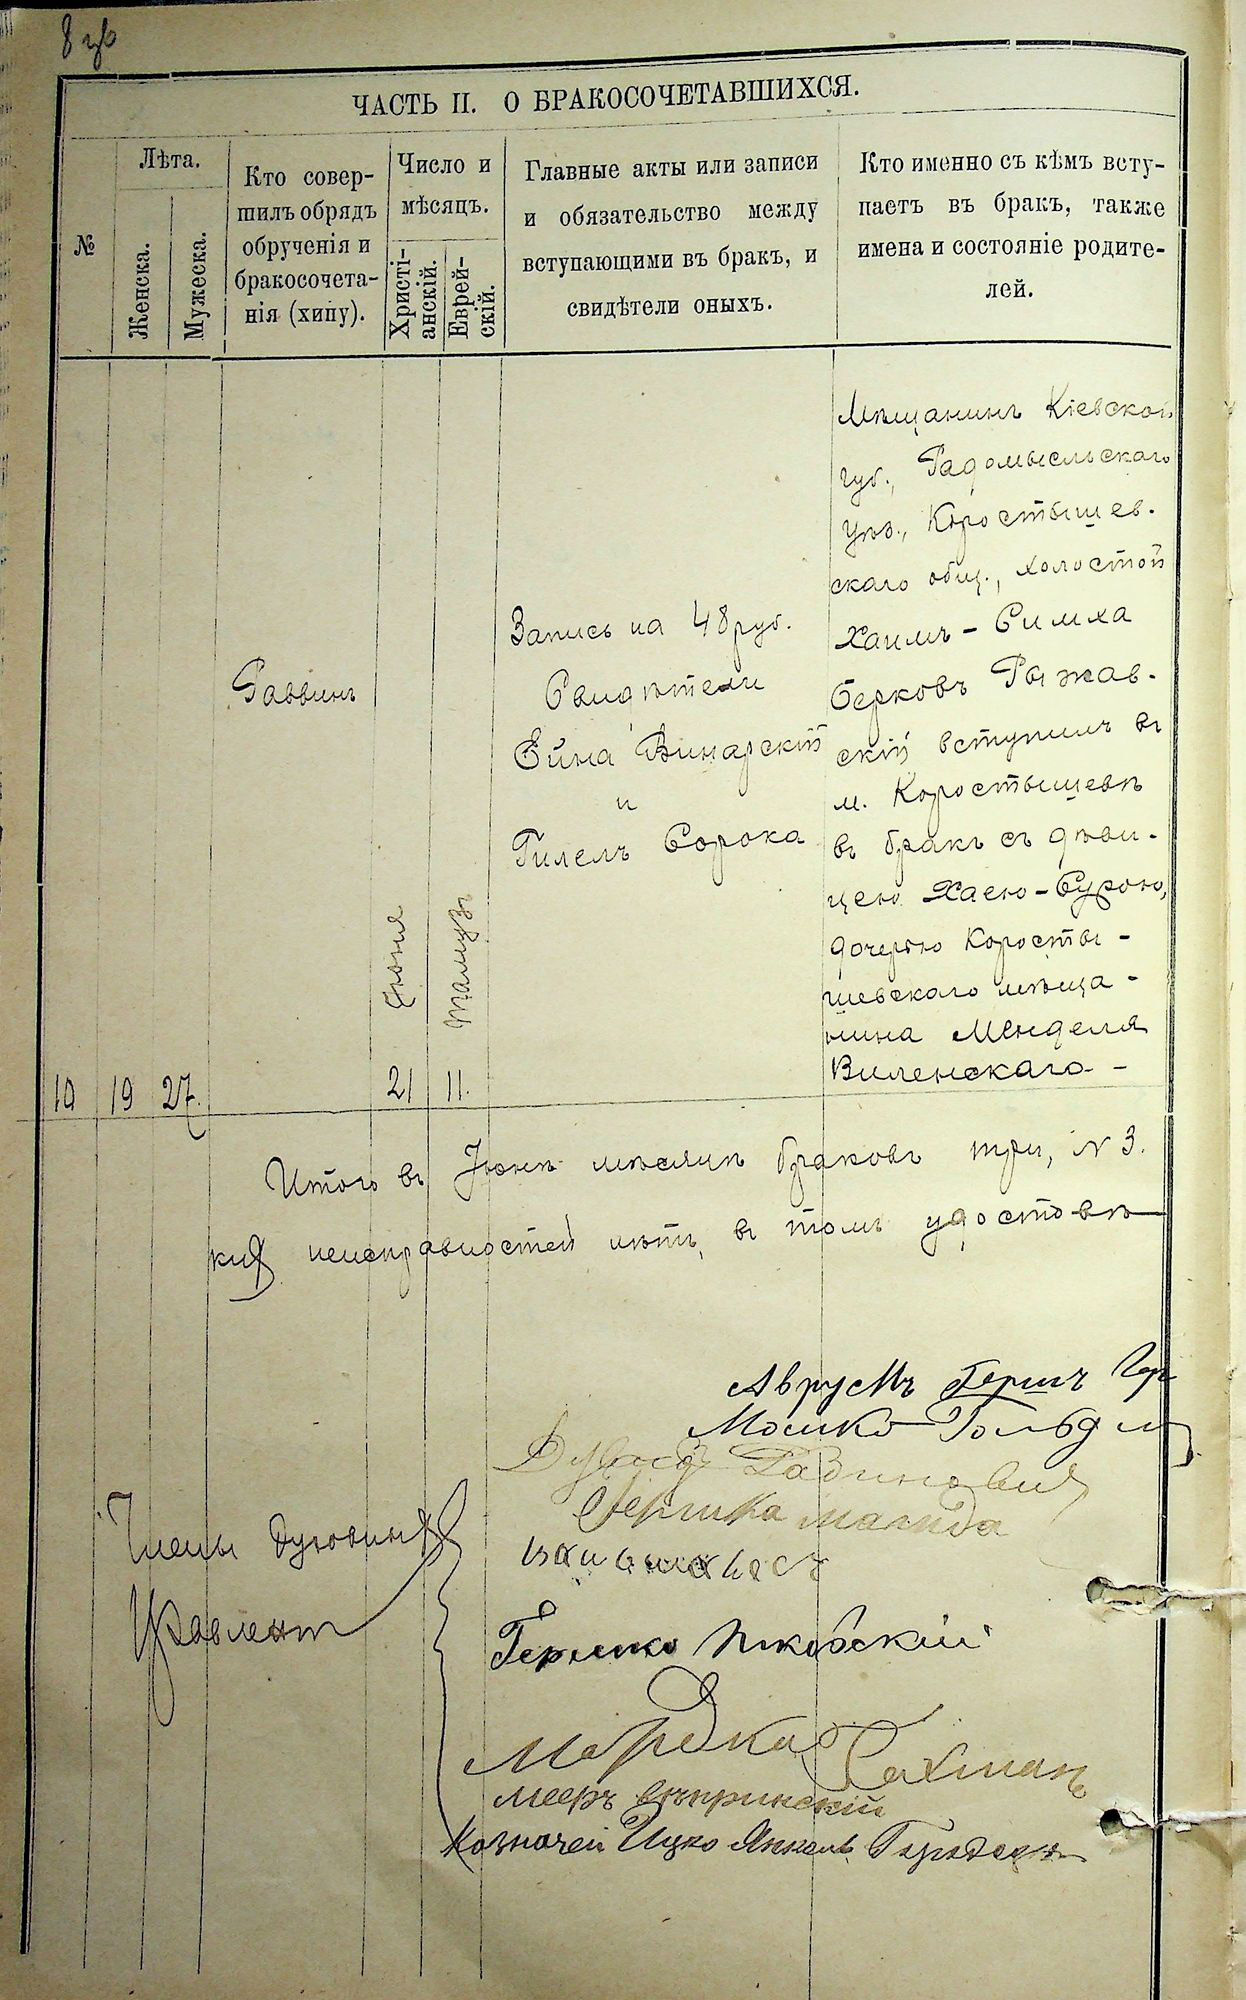 ЧАСТЬ II. О БРАКОСОЧЕТАВШИХСЯ.
№
Лѣта.
Женска.
Мужеска.
Кто совер-
шилъ обрядъ
обрученія и
бракосочета-
нія (хипу).
Число и
мѣсяцъ.
Христі-
анскій.
Еврей-
скій.
Главные акты или записи
и обязательство между
вступающими въ бракъ, и
свидѣтели оныхъ.
Кто именно съ кѣмъ всту-
паетъ въ бракъ, также
имена и состояніе родите-
лей.
19 27.
Раввинъ
Іюня
21
Тамузъ
11.
Запись на 48 руб.
Свидѣтели
Ейна Винарскій
и
Гилель Сорока
Мѣщанинъ Кіевской
губ., Радомысльскаго
уѣз., Коростышев-
скаго общ., холостой
Хаимъ-Симха
Берковъ Ржав-
скій вступилъ въ
м. Коростышевѣ
въ бракъ съ дѣви-
цею Хаею-Сурою,
дочерью Коросты-
шевскаго мѣща-
нина Менделя
Виленскаго-
Итого въ Іюнѣ мѣсяцѣ браковъ три, N 3.
неисправностей нѣтъ, въ томъ удостовѣ
Аврумъ Гершъ
Мошко
Рабиновичъ
Гершко
Члены Духовн
Правлен
Мордко Сахманъ
Мееръ
Казначей Ицко Янкель